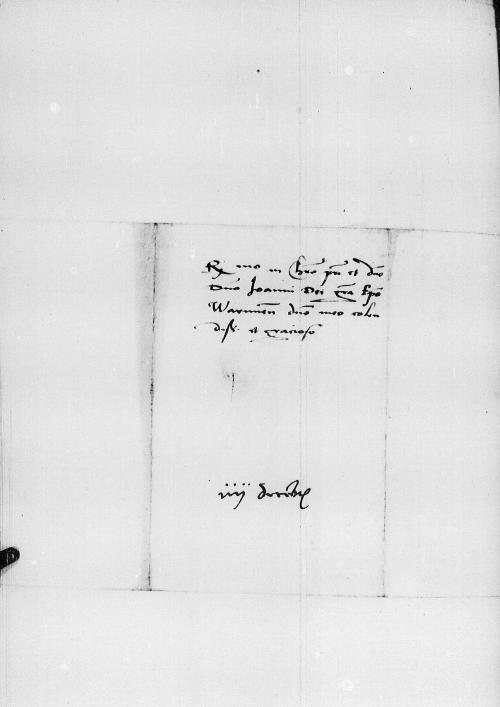 R mo in Chro pri et dno
Dno Joanni Dei gra Epo
Warmien dno meo colen
diss et gracioso
iiij Decembr